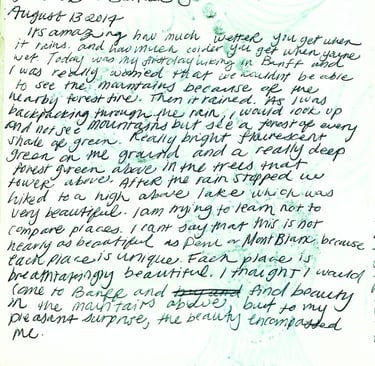 August 13 2014
It's amazing how much wetter you get when
it rains. and how much colder you get when you're
wet. Today was my first day hiking in Banff and
I was really worried that we wouldn't be able
to see the mountains because of the
nearby forest fire. Then it rained. As I was
backpacking through the rain, I would look up
and not see mountains but see a forest of every
shade of green. Really bright fluorescent
green on the ground and a really deep
forest green above in the trees that
tower above. After the rain stopped we
hiked to a high above lake which was
very beautiful. I am trying to learn not to
compare places. I can't say that this is not
nearly as beautiful as Peru or Mont Blanc because
each place is unique. Each place is
breathtakingly beautiful. I thought I would
come to Banff and try and find beauty
in the mountains above, but to my
pleasant surprise, the beauty encompassed
me.